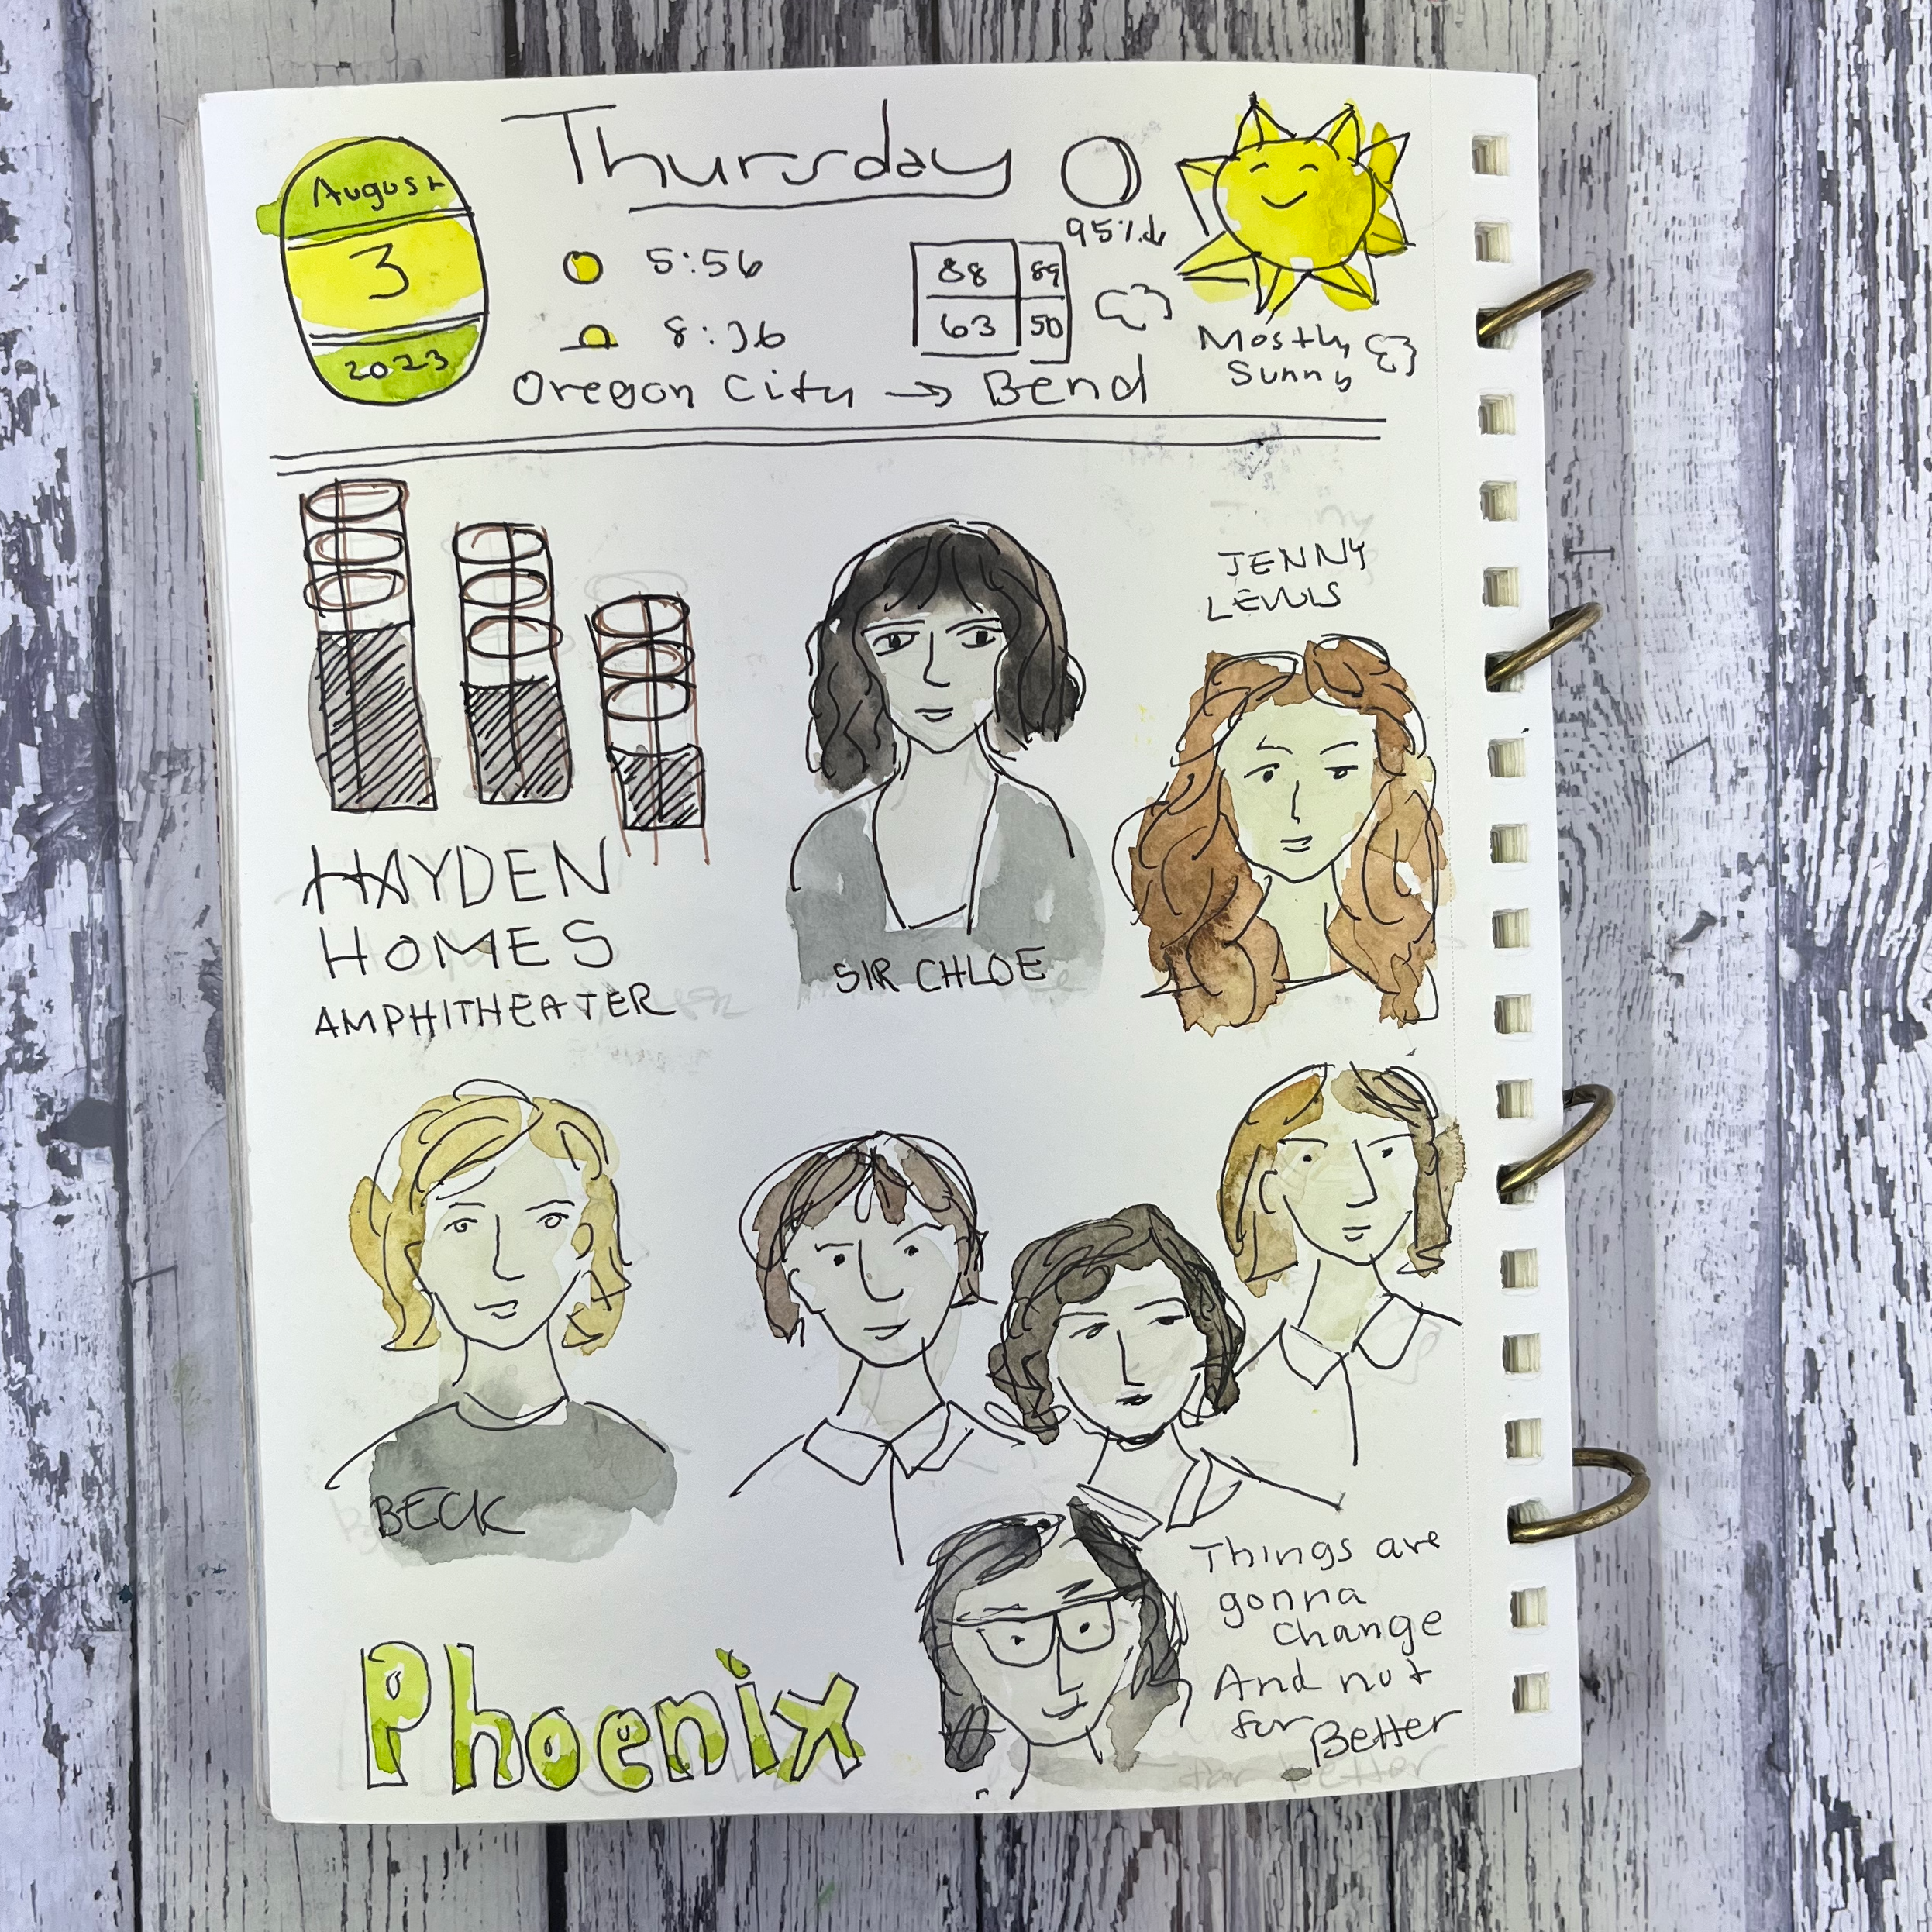 August
3
2023
Thursday
95%↓
5:56
8:36
88 89
63 50
Mostly
Sunny
Oregon City → Bend
HAYDEN
HOMES
AMPHITHEATER
SIR CHLOE
JENNY
LEWIS
BECK
Phoenix
Things are
gonna
change
And not
for Better